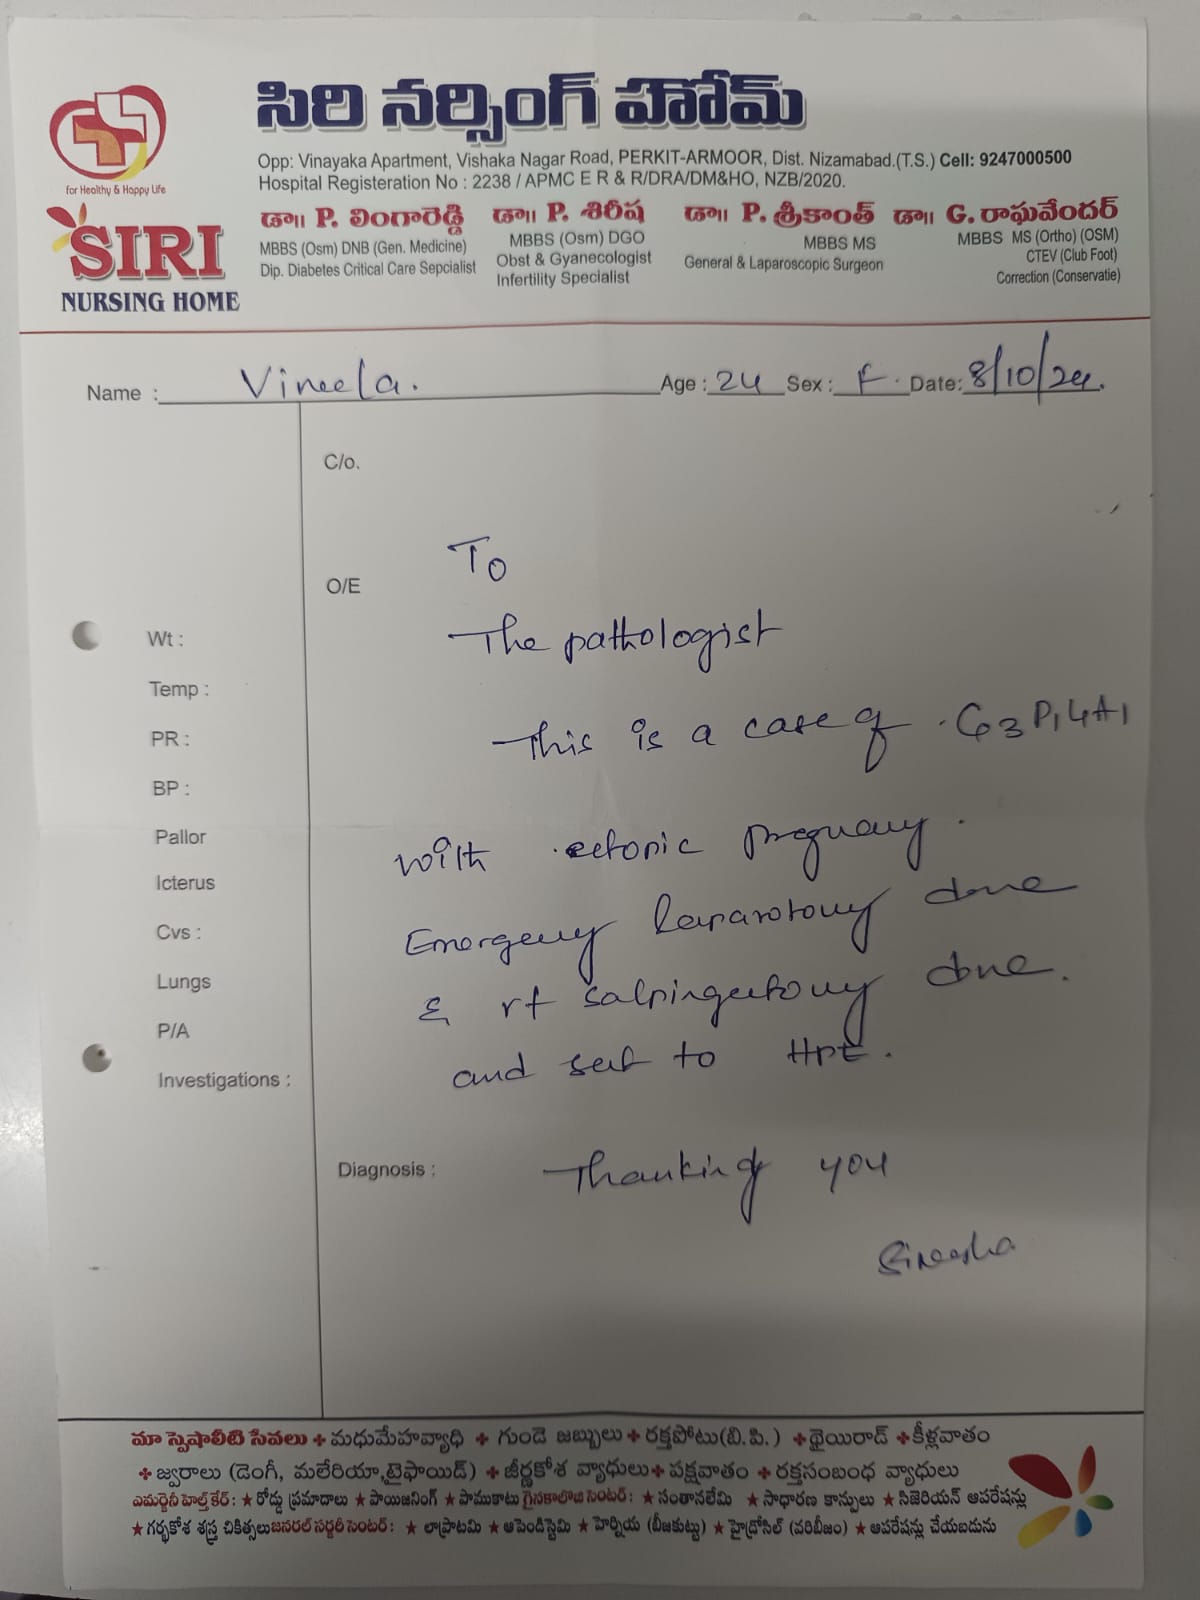 సిరి నర్సింగ్ హోమ్
Opp: Vinayaka Apartment, Vishaka Nagar Road, PERKIT-ARMOOR, Dist. Nizamabad.(T.S.) Cell: 9247000500
Hospital Registeration No : 2238 / APMC E R & R/DRA/DM&HO, NZB/2020.
for Healthy & Happy Life
SIRI
NURSING HOME
డా॥ P. లింగారెడ్డి
MBBS (Osm) DNB (Gen. Medicine)
Dip. Diabetes Critical Care Sepcialist
డా॥ P. శిరీష
MBBS (Osm) DGO
Obst & Gyanecologist
Infertility Specialist
డా॥ P. శ్రీకాంత్
MBBS MS
General & Laparoscopic Surgeon
డా॥ G. రాఘవేందర్
MBBS MS (Ortho) (OSM)
CTEV (Club Foot)
Correction (Conservatie)
Name : Vineela. Age : 24 Sex : F. Date: 8/10/24.
C/o.
O/E
Wt :
Temp :
PR :
BP :
Pallor
Icterus
Cvs :
Lungs
P/A
Investigations :
To
The pathologist
This is a case of G3 P1L1A1
with ectopic pregnancy.
Emergency laparotomy done
& rt salpingectomy done.
and sent to HPE.
Diagnosis :
Thanking you
Sireesha
మా స్పెషాలిటి సేవలు + మధుమేహవ్యాధి + గుండె జబ్బులు + రక్తపోటు(బి.పి.) + థైయిరాడ్ + కీళ్లవాతం
+ జ్వరాలు (డెంగీ, మలేరియా,టైఫాయిడ్) + జీర్ణకోశ వ్యాధులు + పక్షవాతం + రక్తసంబంధ వ్యాధులు
ఎమర్జెనీ హెల్త్ కేర్ : ★ రోడ్డు ప్రమాదాలు ★ పాయిజనింగ్ ★ పాముకాటు గైనకాలొజి సెంటర్ : ★ సంతానలేమి ★ సాధారణ కాన్పులు ★ సిజెరియన్ ఆపరేషన్లు
★ గర్భకోశ శస్త్ర చికిత్సలు జనరల్ సర్జరీ సెంటర్ : ★ లాప్రాటమి ★ అపెండిస్టెమి ★ హెర్నియ (బీజకుట్టు) ★ హైడ్రోసిల్ (వరిబీజం) ★ ఆపరేషన్లు చేయబడును